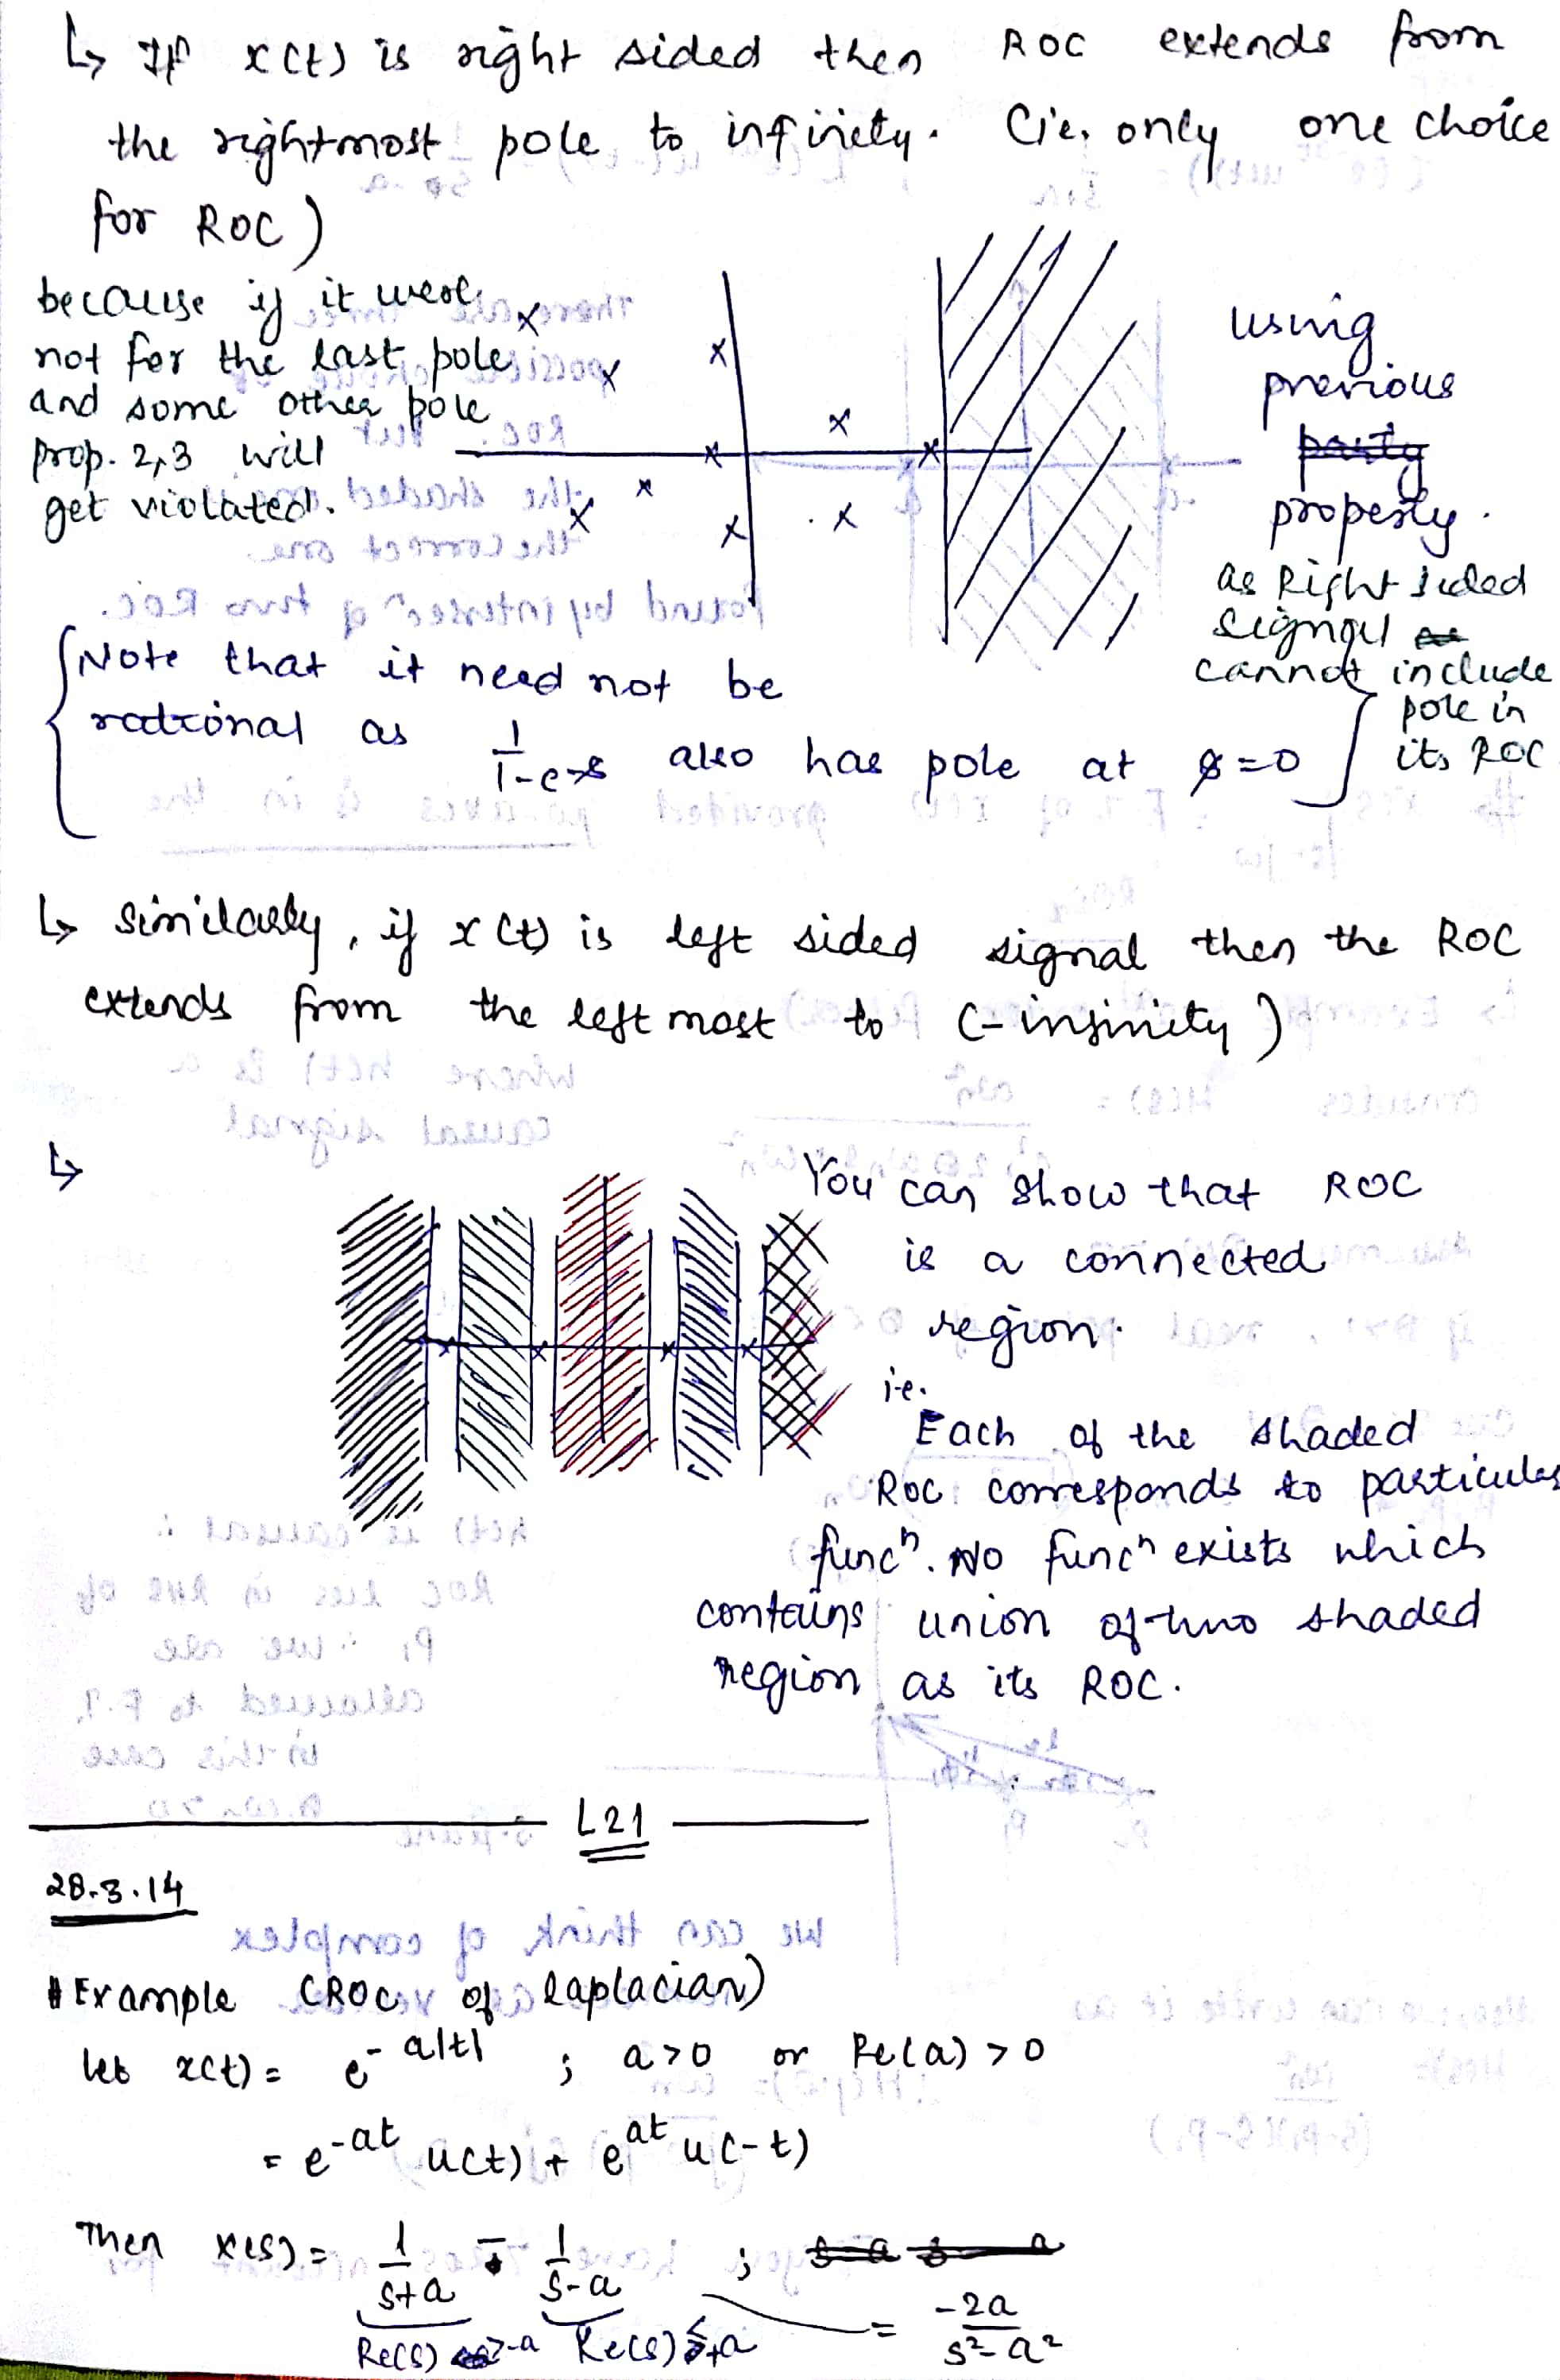 ↳ If x(t) is right sided then ROC extends from
the rightmost pole to infiniety. (i.e. only one choice
for ROC)
because if it were
not for the last pole
and some other pole
prop. 2,3 will
get violated.
using
previous
property.
as Right sided
signal
cannot include
pole in
its ROC
{Note that it need not be
rational as 1/(1-e^-s) also has pole at s=0}
↳ Similarly, if x(t) is left sided signal then the ROC
extends from the left most to (-infinity)
↳
You can show that ROC
is a connected
region.
i.e.
Each of the shaded
ROC corresponds to particular
funcⁿ. No funcⁿ exists which
contains union of two shaded
region as its ROC.
L21
28.3.14
# Example (ROC of Laplacian)
let x(t) = e^-a|t| ; a>0 or Re(a) > 0
= e^-at u(t) + e^at u(-t)
Then X(s) = 1/(s+a) - 1/(s-a) ;
Re(s) > -a Re(s) < +a = -2a/(s²-a²)